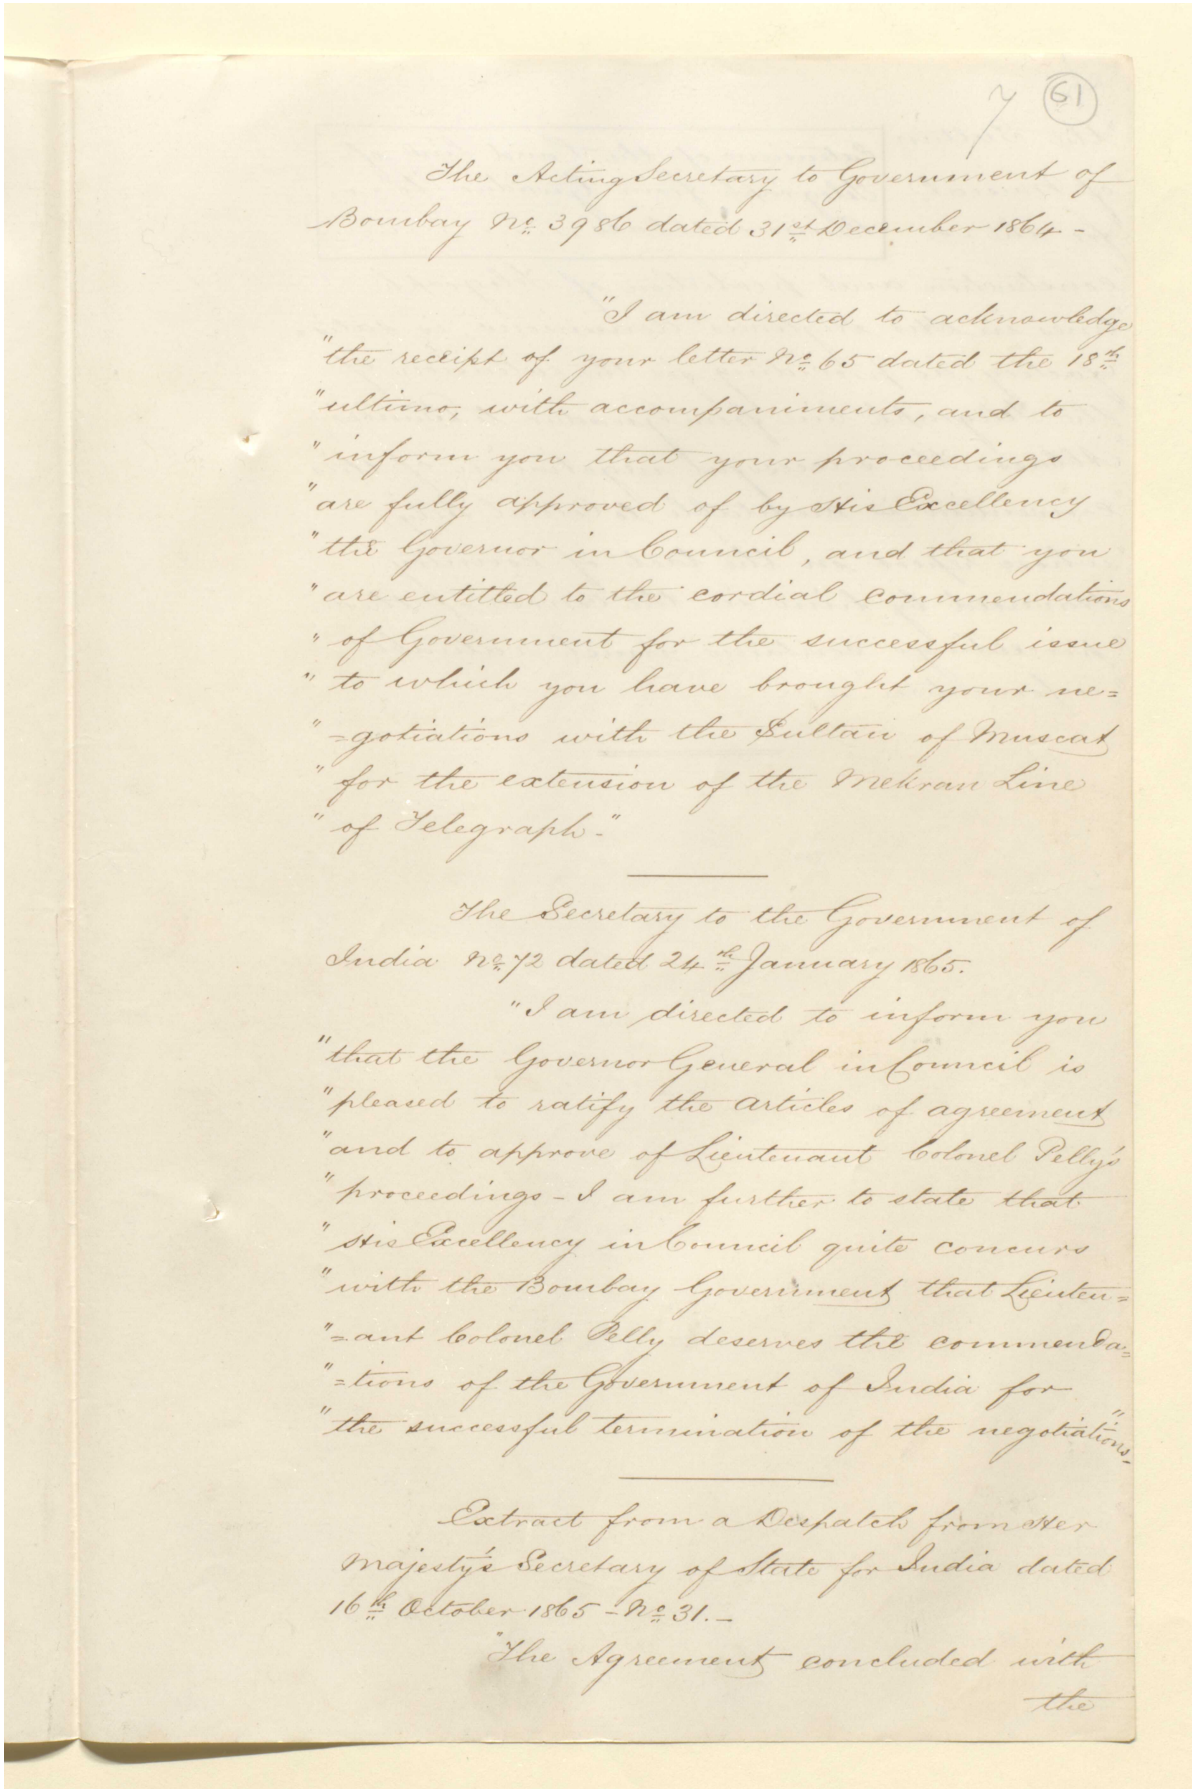 7 61
The Acting Secretary to Government of
Bombay No. 3986 dated 31st December 1864 -
"I am directed to acknowledge
"the receipt of your letter No. 65 dated the 18th
"ultimo, with accompaniments, and to
"inform you that your proceedings
"are fully approved of by His Excellency
"the Governor in Council, and that you
"are entitled to the cordial commendations
"of Government for the successful issue
"to which you have brought your ne=
"=gotiations with the Sultan of Muscat
"for the extension of the Mekran Line
"of Telegraph."
The Secretary to the Government of
India No. 72 dated 24th January 1865.
"I am directed to inform you
"that the Governor General in Council is
"pleased to ratify the articles of agreement
"and to approve of Lieutenant Colonel Pelly's
"proceedings - I am further to state that
"His Excellency in Council quite concurs
"with the Bombay Government that Lieuten=
"=ant Colonel Pelly deserves the commenda=
"=tions of the Government of India for
"the successful termination of the negotiations."
Extract from a Despatch from Her
Majesty's Secretary of State for India dated
16th October 1865 - No. 31. -
"The Agreement concluded with
the